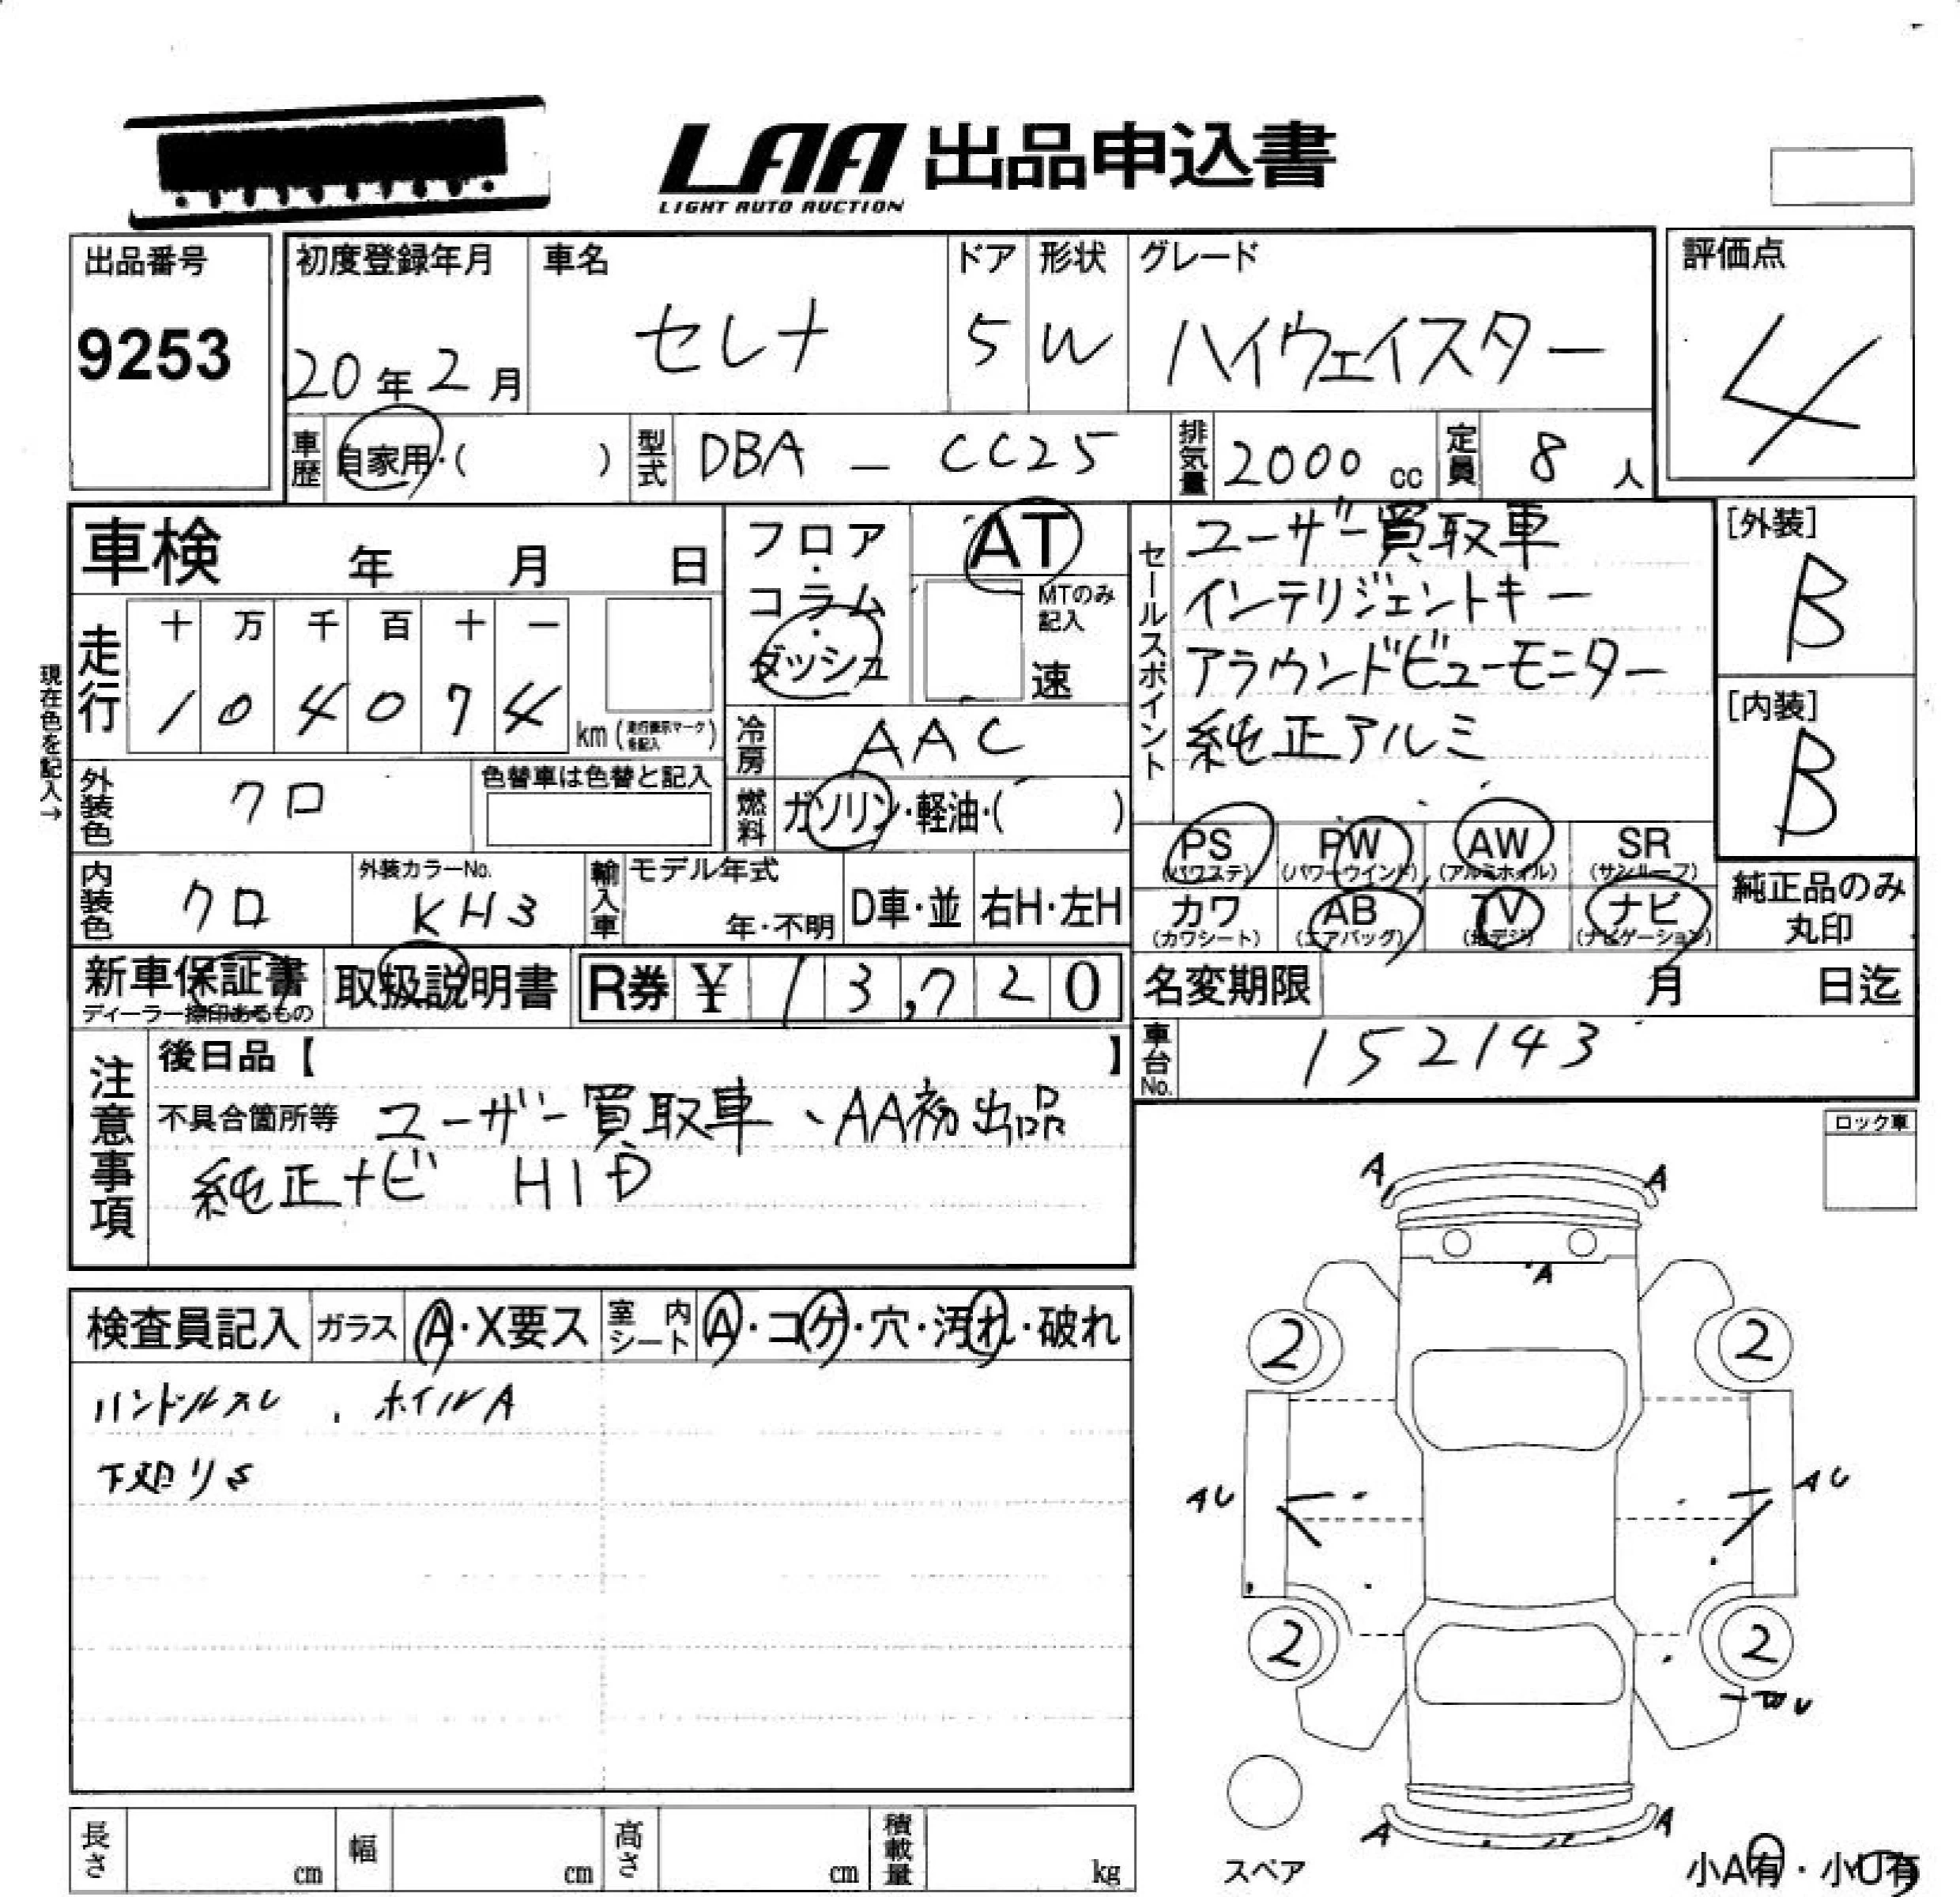 LAA 出品申込書
LIGHT AUTO AUCTION
出品番号
9253
初度登録年月
20年2月
車名
セレナ
ドア
5
形状
W
グレード
ハイウェイスター
評価点
4
車歴
自家用・( )
型式
DBA - CC25
排気量
2000 cc
定員
8 人
車検 年 月 日
フロア・コラム・ダッシュ
AT
MTのみ記入
速
セールスポイント
ユーザー買取車
インテリジェントキー
アラウンドビューモニター
純正アルミ
[外装]
B
[内装]
B
現在色を記入→
走行
十 万 千 百 十 一
1 0 4 0 7 4
km (走行表示マークを記入)
冷房
AAC
外装色
クロ
色替車は色替と記入
燃料
ガソリン・軽油・( )
PS (パワステ)
PW (パワーウインド)
AW (アルミホイル)
SR (サンルーフ)
内装色
クロ
外装カラーNo.
KH3
輸入車
モデル年式
年・不明
D車・並
右H・左H
カワ (カワシート)
AB (エアバッグ)
TV (地デジ)
ナビ (ナビゲーション)
純正品のみ丸印
新車保証書
ディーラー捺印あるもの
取扱説明書
R券 ¥ 13,720
名変期限 月 日迄
車台No.
152143
注意事項
後日品【 】
不具合箇所等 ユーザー買取車、AA初出品
純正ナビ HID
ロック車
検査員記入
ガラス
A・X要ス
室内シート
A・コゲ・穴・汚れ・破れ
ハンドルスレ . ホイルA
下廻りS
A A
A
2 2
AU AU
2 2
A A
スペア
小A有・小U有
長さ cm
幅 cm
高さ cm
積載量 kg